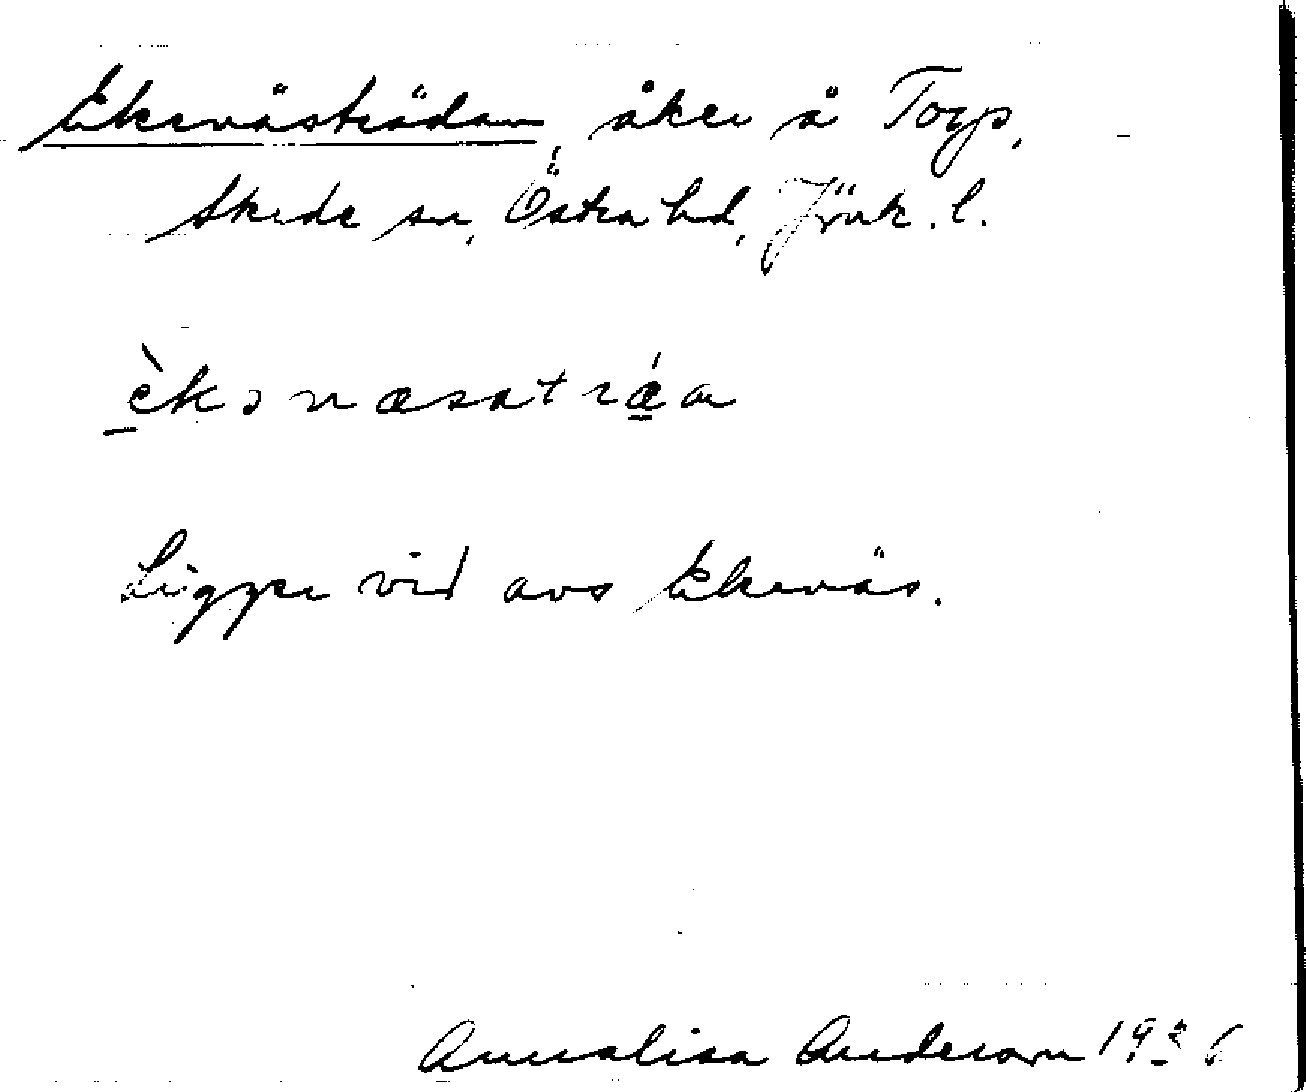 Ekenästrädan, åker å Torp,
Skede sn, Östra hd, Jönk. l.
èkɔnæsatrǽa
Ligger vid avs Ekenäs.
Annalisa Anderson 1936